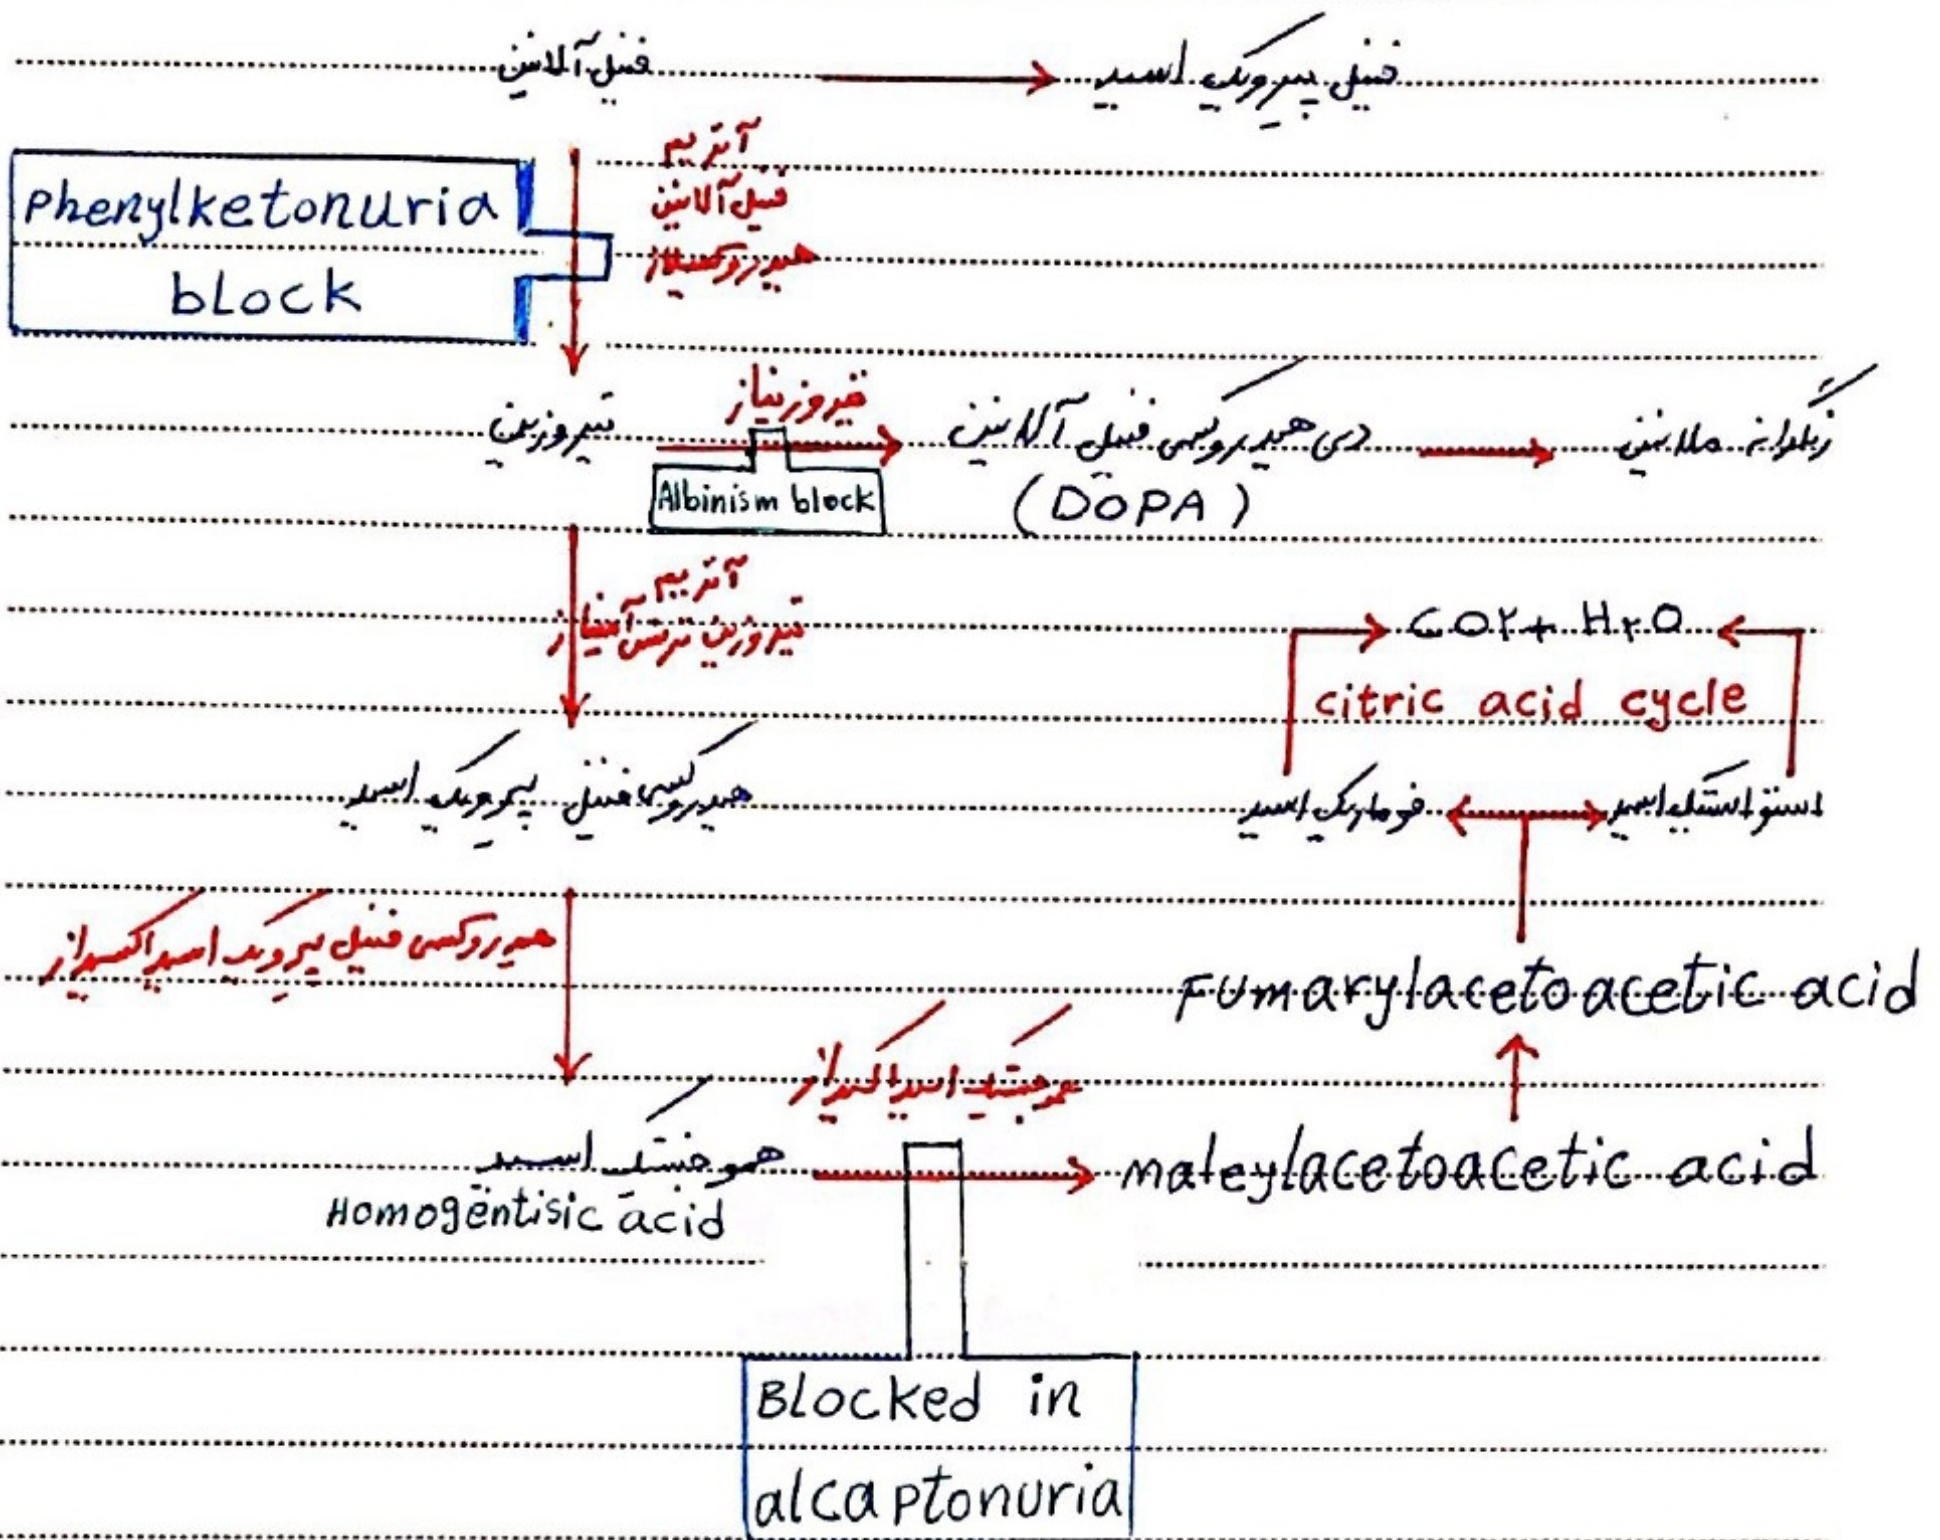 فنیل آلانین
فنیل پیرویک اسید
آنزیم
فنیل آلانین
هیدروکسیلاز
Phenylketonuria
block
تیروزین
تیروزیناز
دی هیدروکسی فنیل آلانین
(DOPA)
رنگدانه ملانین
Albinism block
آنزیم
تیروزین ترنس آمیناز
CO۲ + H۲O
citric acid cycle
هیدروکسی فنیل پیرویک اسید
فوماریک اسید
استو استیک اسید
هیدروکسی فنیل پیرویک اسید اکسیداز
Fumarylacetoacetic acid
هموجنتیک اسید اکسیداز
هموجنتیک اسید
Homogentisic acid
maleylacetoacetic acid
Blocked in
alcaptonuria